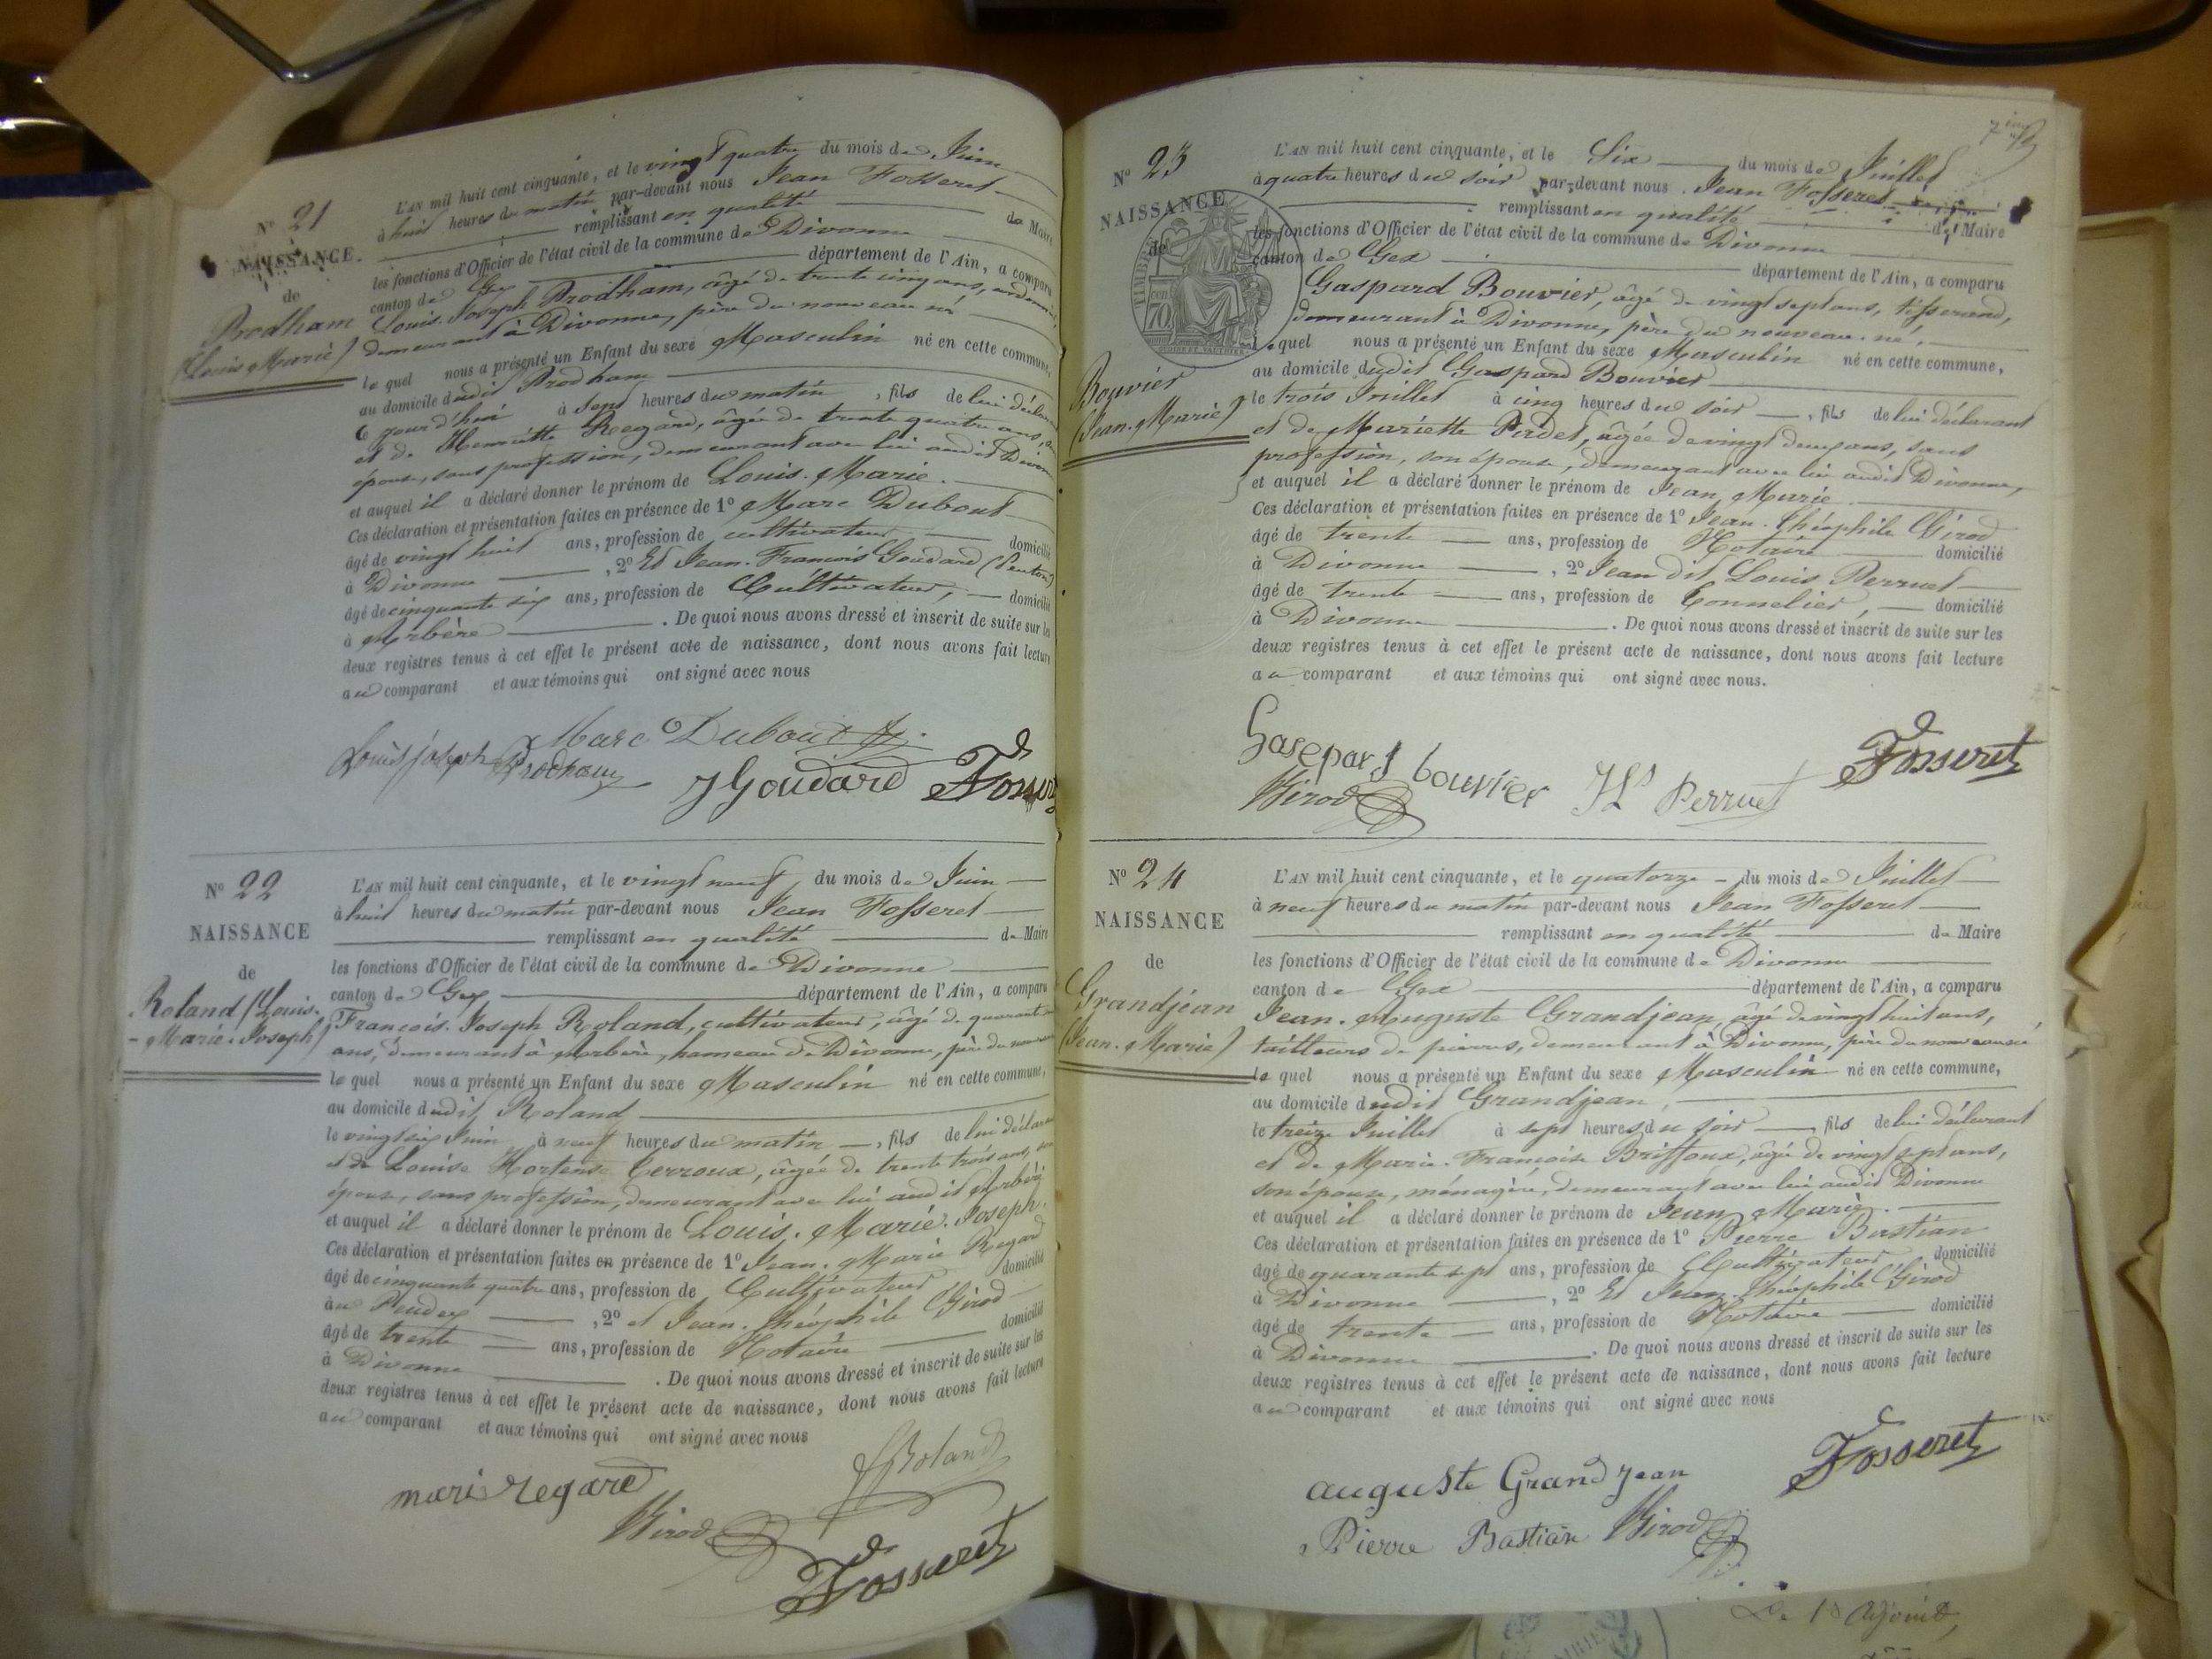 N° 21
NAISSANCE.
de
Prodham
(Louis Marie)
L'AN mil huit cent cinquante, et le vingt quatre du mois de Juin
à huit heures du matin par-devant nous Jean Fosseret
remplissant en qualité de Maire
les fonctions d'Officier de l'état civil de la commune de Divonne
canton de Gex département de l'Ain, a comparu
Louis Joseph Prodham, âgé de trente cinq ans,
demeurant à Divonne, père du nouveau né
le quel nous a présenté un Enfant du sexe Masculin né en cette commune,
au domicile dudit Prodham
ce jourd'hui à sept heures du matin, fils de lui déclarant
et de Henriette Regard, âgée de trente quatre ans,
épouse, sans profession, demeurant avec lui audit Divonne
et auquel il a déclaré donner le prénom de Louis. Marie.
Ces déclaration et présentation faites en présence de 1° Marc Dubout
âgé de vingt huit ans, profession de cultivateur domicilié
à Divonne, 2° Et Jean. François Goudard
âgé de cinquante six ans, profession de Cultivateur, domicilié
à Arbère. De quoi nous avons dressé et inscrit de suite sur les
deux registres tenus à cet effet le présent acte de naissance, dont nous avons fait lecture
au comparant et aux témoins qui ont signé avec nous
Marc Dubout
Louis joseph Prodham
J Goudard Fosseret
N° 22
NAISSANCE
de
Roland (Louis.
-Marie. Joseph)
L'AN mil huit cent cinquante, et le vingt neuf du mois de Juin
à huit heures du matin par-devant nous Jean Fosseret
remplissant en qualité de Maire
les fonctions d'Officier de l'état civil de la commune de Divonne
canton de Gex département de l'Ain, a comparu
François. Joseph Roland, cultivateur, âgé de quarante
ans, demeurant à Arbère, hameau de Divonne, père du nouveau
le quel nous a présenté un Enfant du sexe Masculin né en cette commune,
au domicile dudit Roland
le vingt six Juin à neuf heures du matin, fils de lui déclarant
et de Louise Hortense Cerroux, âgée de trente trois ans, son
épouse, sans profession, demeurant avec lui audit Arbère
et auquel il a déclaré donner le prénom de Louis. Marie. Joseph.
Ces déclaration et présentation faites en présence de 1° Jean. Marie Regard
âgé de cinquante quatre ans, profession de Cultivateur domicilié
au, 2° et Jean. Théophile Girod
âgé de trente ans, profession de Notaire domicilié
à Divonne. De quoi nous avons dressé et inscrit de suite sur les
deux registres tenus à cet effet le présent acte de naissance, dont nous avons fait lecture
au comparant et aux témoins qui ont signé avec nous
mari regard Roland
Girod
Fosseret
N° 23
NAISSANCE
de
TIMBRE
70
Bouvier
(Jean. Marie)
L'AN mil huit cent cinquante, et le Six du mois de Juillet
à quatre heures du soir par-devant nous Jean Fosseret
remplissant en qualité de Maire
les fonctions d'Officier de l'état civil de la commune de Divonne
canton de Gex département de l'Ain, a comparu
Gaspard Bouvier, âgé de vingt sept ans, tisserand,
demeurant à Divonne, père du nouveau. né,
le quel nous a présenté un Enfant du sexe Masculin né en cette commune,
au domicile dudit Gaspard Bouvier
le trois Juillet à cinq heures du soir, fils de lui déclarant
et de Mariette Padet, âgée de vingt deux ans, sans
profession, son épouse, demeurant avec lui audit Divonne,
et auquel il a déclaré donner le prénom de Jean Marie
Ces déclaration et présentation faites en présence de 1° Jean. Théophile Girod
âgé de trente ans, profession de Notaire domicilié
à Divonne, 2° Jean dit Louis Perruet
âgé de trente ans, profession de Tonnelier, domicilié
à Divonne. De quoi nous avons dressé et inscrit de suite sur les
deux registres tenus à cet effet le présent acte de naissance, dont nous avons fait lecture
au comparant et aux témoins qui ont signé avec nous.
Gasepard bouvier Perruet Fosseret
Girod
N° 24
NAISSANCE
de
Grandjean
(Jean. Marie)
L'AN mil huit cent cinquante, et le quatorze du mois de Juillet
à neuf heures du matin par-devant nous Jean Fosseret
remplissant en qualité de Maire
les fonctions d'Officier de l'état civil de la commune de Divonne
canton de Gex département de l'Ain, a comparu
Jean. Auguste Grandjean, âgé de vingt huit ans,
tailleurs de pierres, demeurant à Divonne, père du nouveau né
le quel nous a présenté un Enfant du sexe Masculin né en cette commune,
au domicile dudit Grandjean,
le treize Juillet à sept heures du soir, fils de lui déclarant
et de Marie. Françoise Briffoux, âgée de vingt sept ans,
son épouse, ménagère, demeurant avec lui audit Divonne
et auquel il a déclaré donner le prénom de Jean Marie.
Ces déclaration et présentation faites en présence de 1° Pierre Bastian
âgé de quarante sept ans, profession de Cultivateur domicilié
à Divonne, 2° Et Jean. Théophile Girod
âgé de trente ans, profession de Notaire domicilié
à Divonne. De quoi nous avons dressé et inscrit de suite sur les
deux registres tenus à cet effet le présent acte de naissance, dont nous avons fait lecture
au comparant et aux témoins qui ont signé avec nous
auguste Grandjean Fosseret
Pierre Bastian Girod